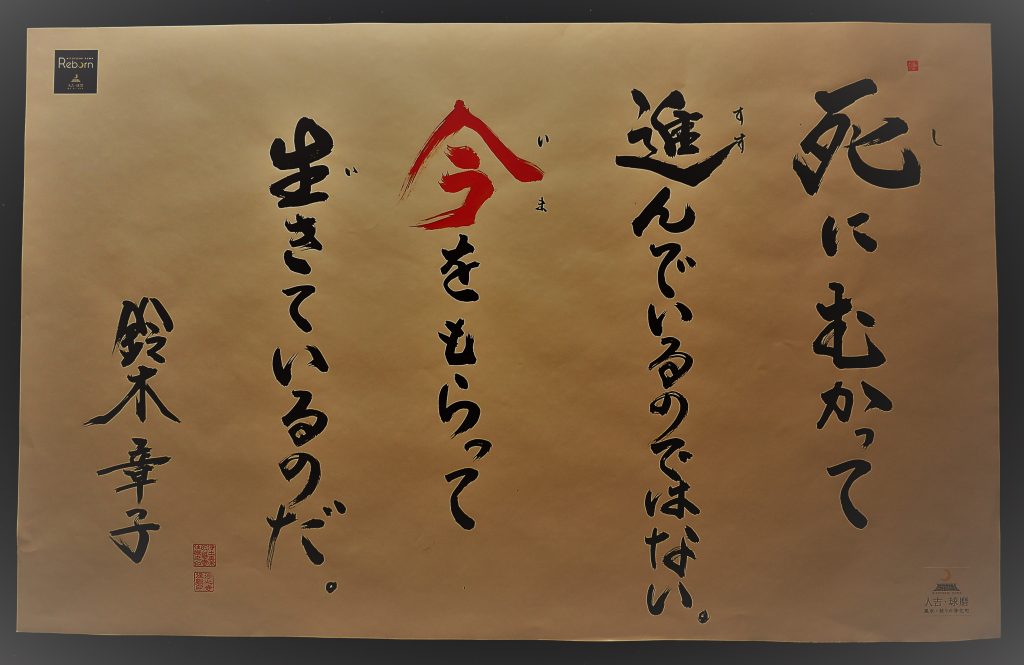 死にむかって
し
進んでいるのではない。
すす
今をもらって
いま
生きているのだ。
い
鈴木章子
Reborn
人吉球磨